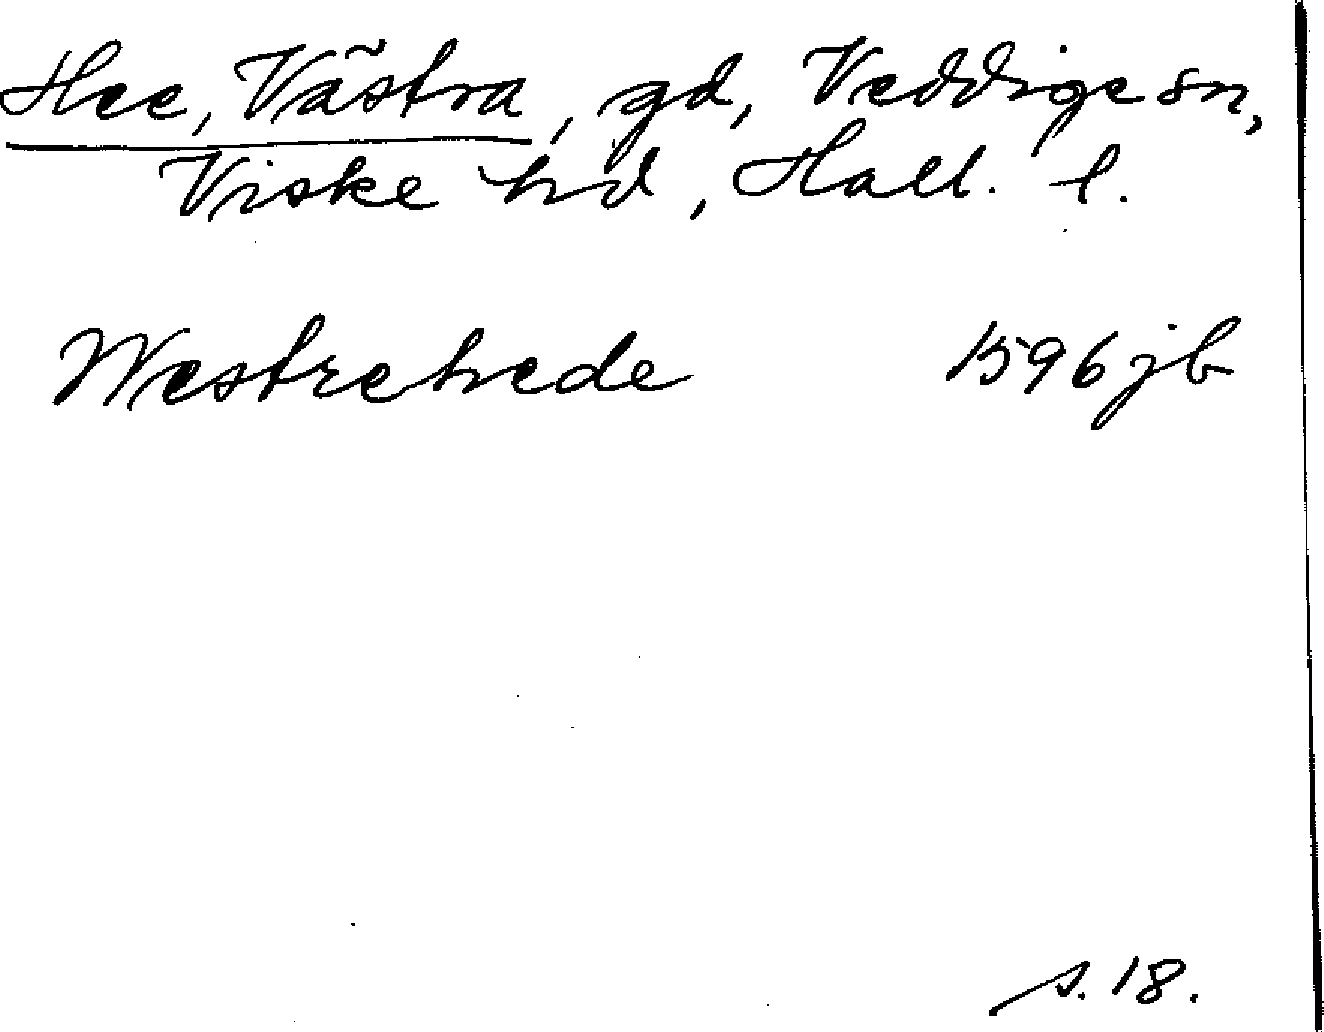 Hee, Västra, gd, Veddige sn,
Viske hd, Hall. l.
Westrehede 1596 jb
s. 18.